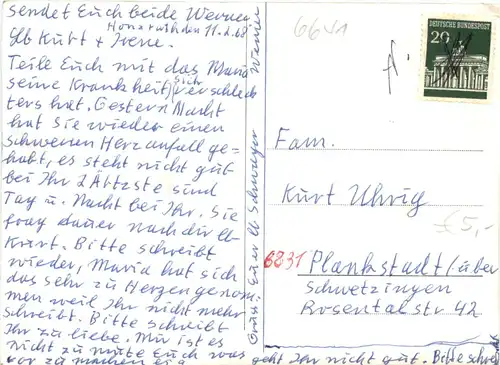 sendet Euch beide Werner
Honzrath den 11.2.68
Lb Kurt + Irene.
Teile Euch mit das Maria
seine Krankheit sich verschlech
ters hat. Gestern Nacht
hat Sie wieder einen
schweren Herzanfall ge-
habt, es steht nicht gut
bei Ihr 2 Ärtzte sind
Tag u. Nacht bei Ihr. Sie
frag dauer nach dir lb
Kurt. Bitte schreibt
wieder, Maria hat sich
das sehr zu Herzen genom
men weil Ihr nicht mehr
schreibt. Bitte schreibt
Ihr zu liebe. Mir ist es
nicht zu mute Euch was
vor zu machen
geht Ihr nicht gut. Bitte schrei
Gruss: Euer lb Schwager Werner
66 31
DEUTSCHE BUNDESPOST
20
Fam.
Kurt Uhrig
£5,-
6831 Plankstadt / über
Schwetzingen
Rosentalstr 42